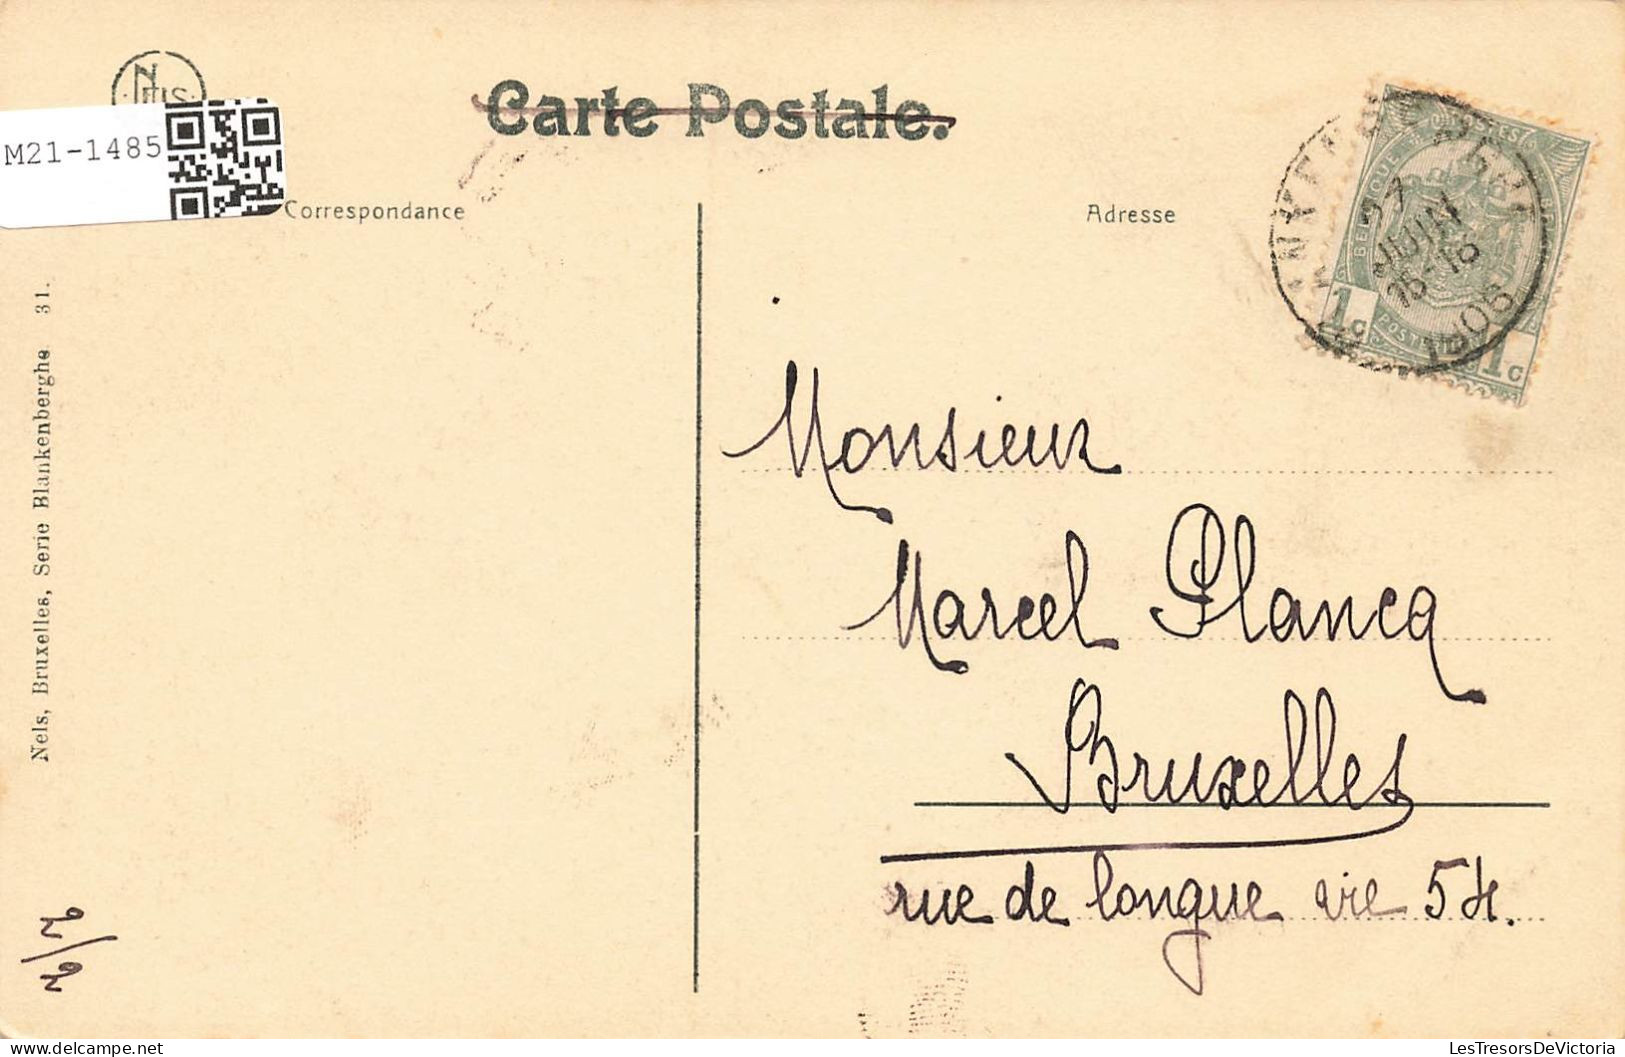 NELS
Carte Postale.
M21-1485
Correspondance
Adresse
BELGIQUE
27
JUIN
15-16
1905
1c
POSTE
1c
Monsieur
Marcel Plancq
Bruxelles
rue de longue vie 54.
Nels, Bruxelles, Serie Blankenberghe 31.
2/2
LesTresorsDeVictoria